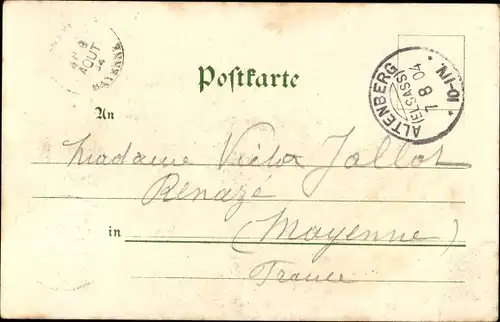 9
AOUT
MAYENNE
Postkarte
ALTENBERG
(ELSASS)
7 8 04
10-11V.
An
Madame Victor Jallot
Renazé
in
(Mayenne)
France